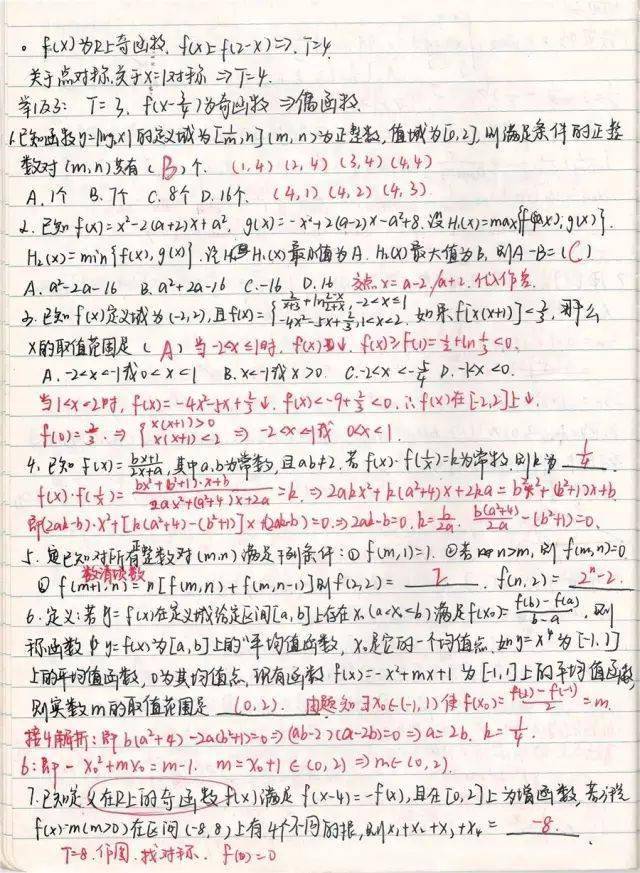 。 f(x)为R上奇函数. f(x)=f(2-x)⇒. T=4.
关于点对称.关于x=1对称 ⇒T=4.
举1反3: T=3, f(x-3/4)为奇函数 ⇒偶函数.
1.已知函数y=|log₂x|的定义域为[1/m,n](m,n)为正整数,值域为[0,2],则满足条件的正整
数对(m,n)共有(B)个. (1,4) (2,4) (3,4) (4,4)
A.1个 B.7个 C.8个 D.16个. (4,1) (4,2) (4,3).
2. 已知f(x)=x²-2(a+2)x+a², g(x)=-x²+2(a-2)x-a²+8.设H₁(x)=max{f(x),g(x)}.
H₂(x)=min{f(x),g(x)}. 记H₁(x)最小值为A. H₂(x)最大值为B, 则A-B=(C)
A. a²-2a-16 B. a²+2a-16 C.-16 D.16 交点x=a-2,/a+2.代入作差.
3. 已知f(x)定义域为(-2,2),且f(x)={2/(x+3)+ln(2-x)/(2+x),-2<x≤1
-4x²-5x+2/3,1<x<2. 如果f[x(x+1)]<2/3,那么
x的取值范围是(A) 当-2<x≤1时, f(x)↓. f(x)≥f(1)=1/2+ln1/3<0.
A.-2<x<-1或0<x<1 B.x<-1或x>0. C.-2<x<-5/4 D.-1<x<0.
当1<x<2时, f(x)=-4x²-5x+2/3↓. f(x)<-9+2/3<0.∴f(x)在[-2,2]上↓.
f(0)=2/3.⇒ {x(x+1)>0
x(x+1)<2 ⇒ -2<x<-1或 0<x<1.
4. 已知f(x)=(bx+1)/(2x+a),其中a,b为常数,且ab≠2.若f(x)·f(1/x)=k为常数,则k为 1/4
f(x)·f(1/x)=(bx²+(b²+1)·x+b)/(2ax²+(a²+4)x+2a)=k.⇒2akx²+k(a²+4)x+2ka=bx²+(b²+1)x+b.
即(2ak-b)·x²+[k(a²+4)-(b²+1)]x+(2ak-b)=0.⇒2ak-b=0, k=b/2a. b(a²+4)/2a-(b²+1)=0.
5. 已知对所有整数对(m,n)满足下列条件:① f(m,1)=1. ②若n>m,则f(m,n)=0
数清项数
③ f(m+1,n)=n[f(m,n)+f(m,n-1)]则f(2,2)= 2 . f(n,2)= 2ⁿ-2.
6.定义:若y=f(x)在定义域给定区间[a,b]上存在x₀(a<x₀<b)满足f(x₀)=(f(b)-f(a))/(b-a). 则
称函数y=f(x)为[a,b]上的"平均值函数, x₀是它的一个均值点,如y=x⁴为[-1,1]
上的平均值函数,0为其均值点,现有函数f(x)=-x²+mx+1为[-1,1]上的平均值函数
则实数m的取值范围是 (0,2). 由题知∃x₀∈(-1,1)使f(x₀)=(f(1)-f(-1))/2=m.
接4解析:即b(a²+4)-2a(b²+1)=0⇒(ab-2)(a-2b)=0⇒a=2b. k=1/4.
6:即-x₀²+mx₀=m-1. m=x₀+1∈(0,2)⇒m∈(0,2).
7.已知定义在R上的奇函数f(x)满足f(x-4)=-f(x),且在[0,2]上为增函数,若方程
f(x)=m(m>0)在区间(-8,8)上有4个不同的根,则x₁+x₂+x₃+x₄= -8.
T=8.作图.找对称. f(0)=0